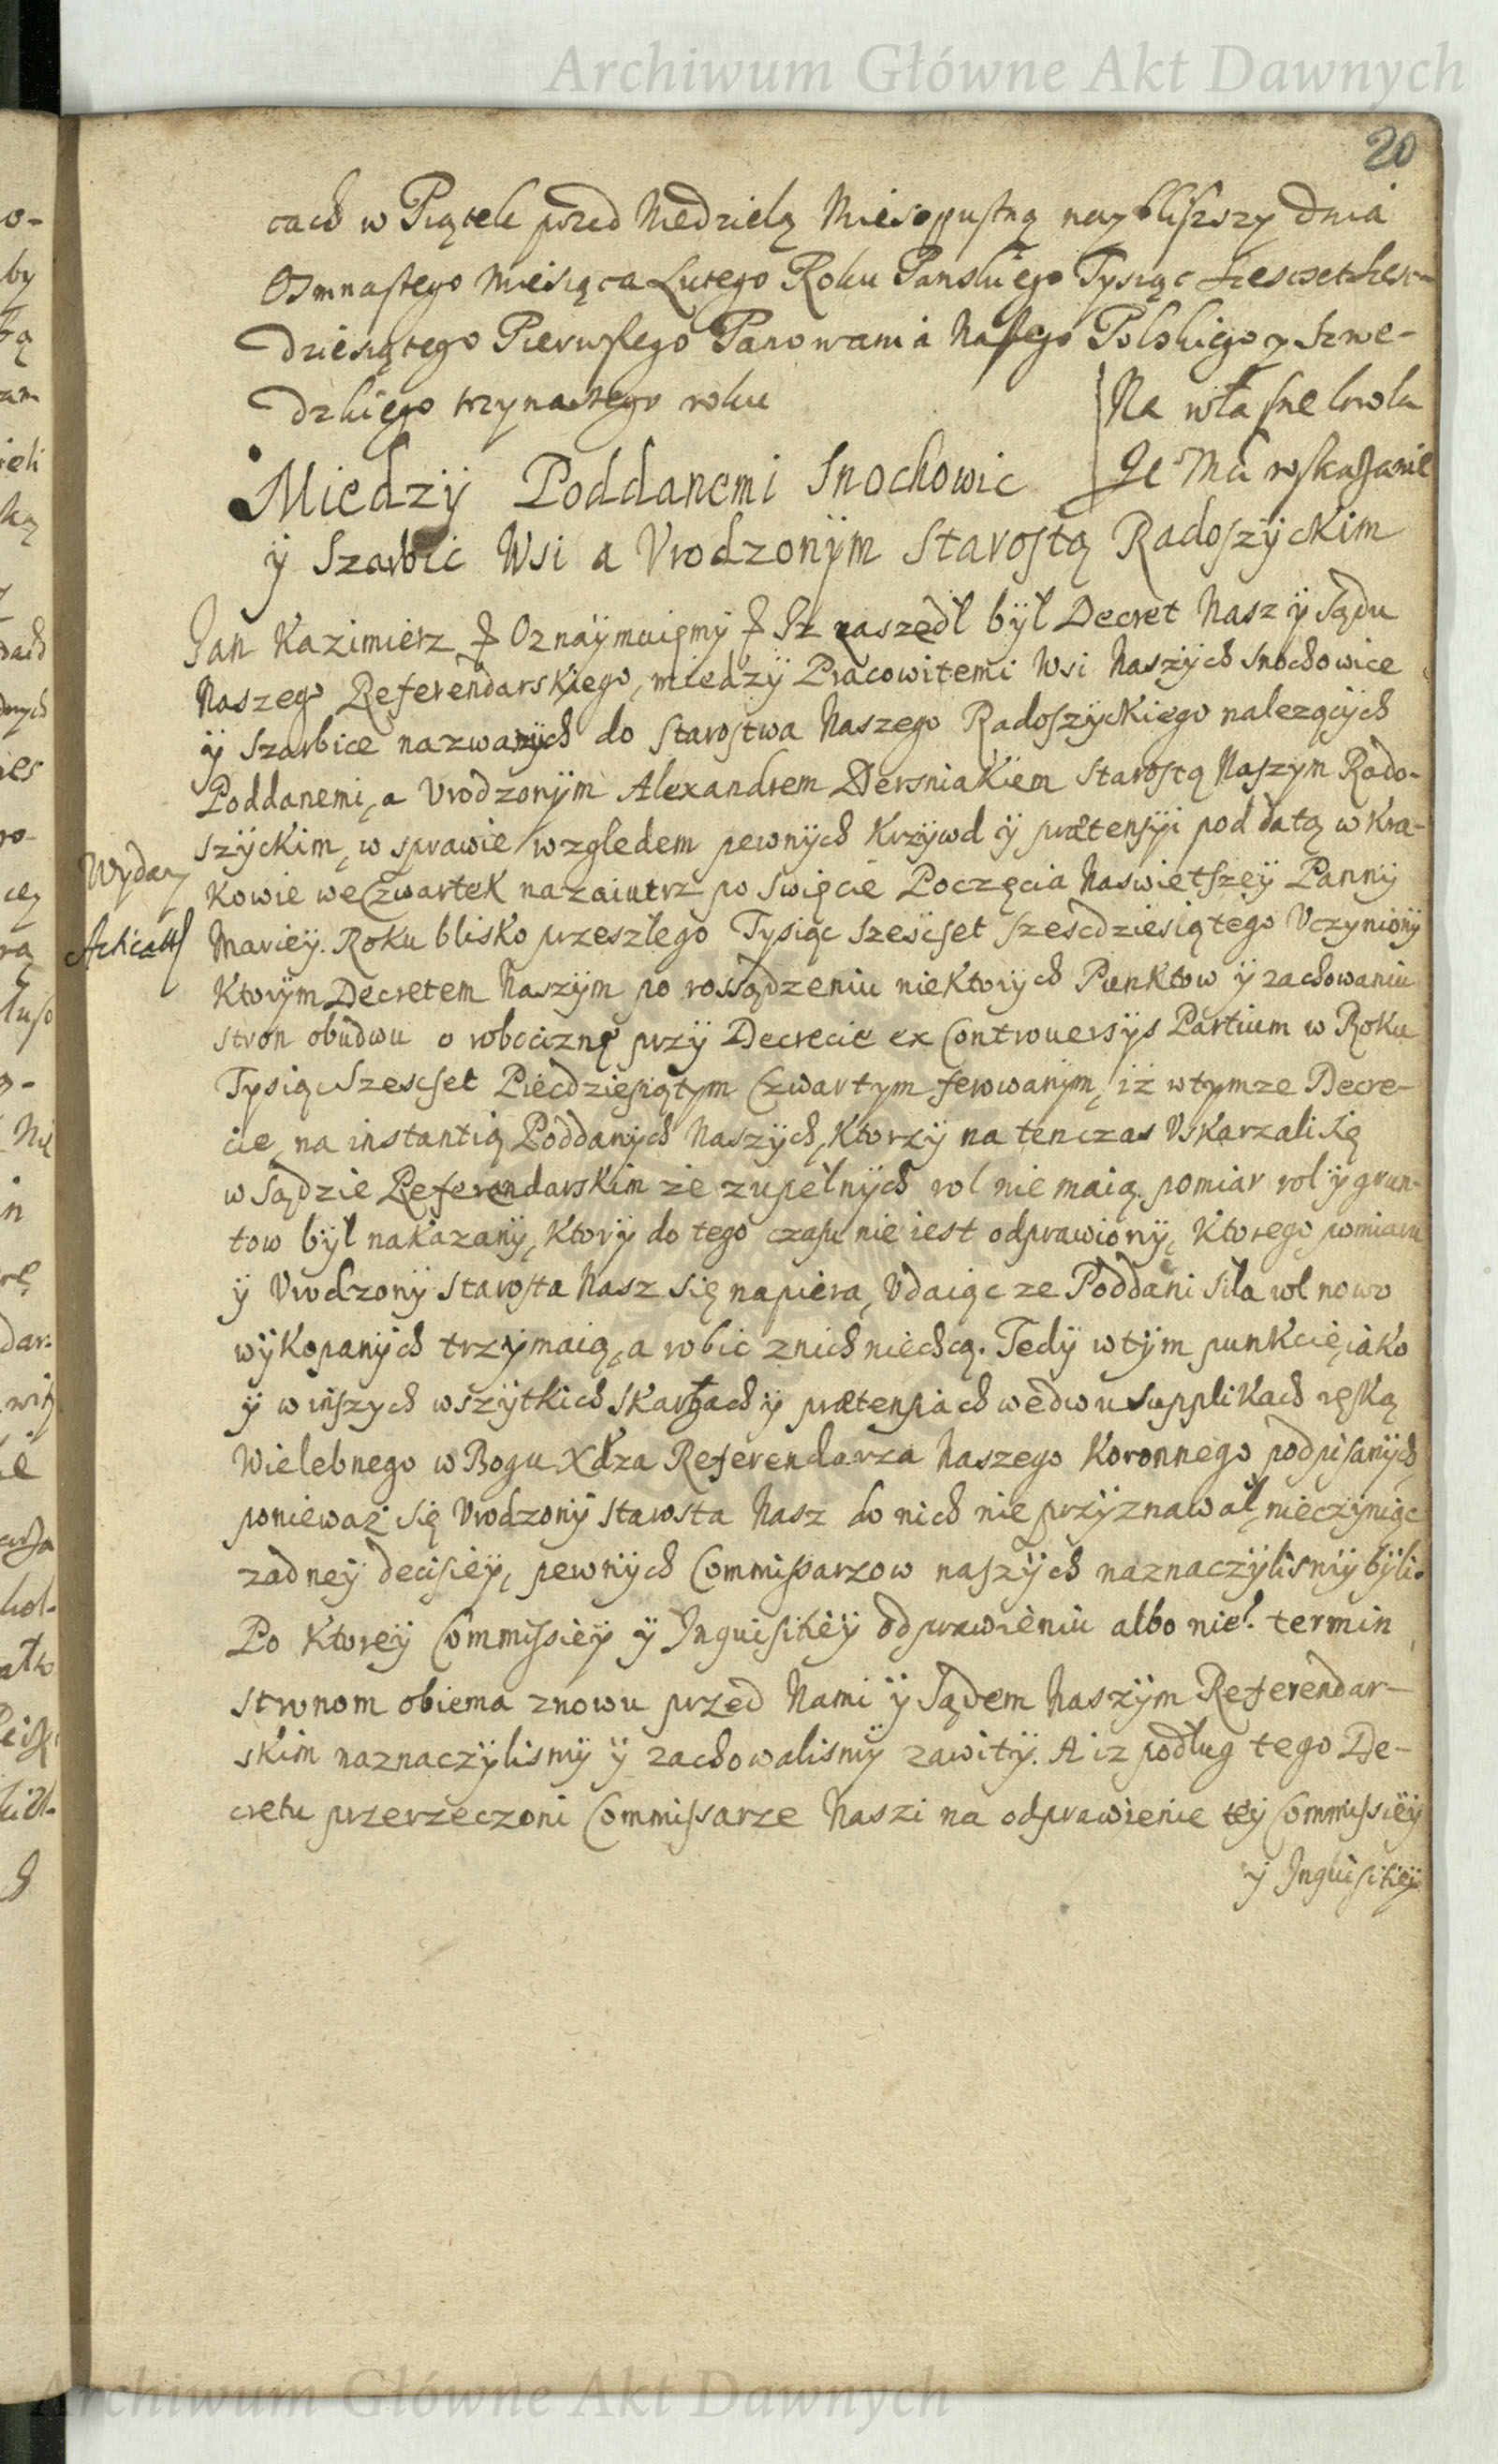 Archiwum Główne Akt Dawnych
20
cach w Piątek przed Niedzielą Mięsopustną naybliższy dnia
Osmnastego Miesiąca Lutego Roku Panskiego Tysiąc Szescset szesc-
dziesiątego Pierwszego Panowania Naszego Polskiego y Szwe-
dzkiego trzynastego roku
Na własne krola
Je Mci roskazanie
Miedzÿ Poddanemi Snochowic
ÿ Szarbic Wsi a Vrodzonÿm Starostą Radoszÿckim
Jan Kazimierz Oznaÿmuięmÿ Iz zaszedł bÿł Decret Nasz ÿ Sądu
Naszego Referendarskiego, miedzÿ Pracowitemi Wsi Naszÿch Snochowice
ÿ Szarbice nazwanÿch do Starostwa Naszego Radoszÿckiego nalezącÿch
Poddanemi, a Vrodzonÿm Alexandrem Dersniakiem Starostą Naszym Rado-
szÿckim, w sprawie względem pewnÿch Krzÿwd ÿ prætensÿi pod datą w Kra-
Wydany
kowie we Czwartek nazaiutrz po Swięcie Poczęcia Naswietszeÿ Pannÿ
Marieÿ. Roku blisko przeszłego Tysiąc Szescset szescdziesiątego Vczynionÿ
Ktorÿm Decretem Naszÿm po rossądzeniu niektorÿch Punktow ÿ zachowaniu
stron obudwu o robociznę przÿ Decrecie ex Controuersÿs Partium w Roku
Tysiąc Szescset Piecdziesiątym Czwartym ferowanÿm, iż wtymze Decre-
cie, na instantią Poddanÿch Naszÿch, Ktorzÿ na tenczas Vskarzali się
w Sądzie Referendarskim że zupełnÿch rol nie maią. pomiar rol ÿ grun-
tow bÿł nakazanÿ, Ktorÿ do tego czasu nie iest odprawionÿ, Ktorego pomiaru
ÿ Vrodzonÿ Starosta Nasz się napiera, Vdaiąc ze Poddani siła rol nowo
wÿkopanÿch trzÿmaią, a robic znich niechcą. Tedÿ wtÿm punkcie, iako
ÿ w inszych wszÿtkich skargach ÿ prætensiach wedwu Supplikach ręką
Wielebnego w Bogu Xdza Referendarza Naszego Koronnego podpisanÿch,
ponieważ się Vrodzonÿ Starosta Nasz do nich nie przÿznawał, nieczÿniąc
zadneÿ decisieÿ, pewnÿch Commissarzow naszÿch naznaczÿlismÿ bÿli.
Po Ktoreÿ Commissieÿ ÿ Inquisitieÿ odprawieniu albo nie. termin
stronom obiema znowu przed Nami ÿ Sądem Naszÿm Referendar-
skim naznaczÿlismÿ ÿ zachowalismÿ zawitÿ. A iz podług tego De-
cretu przerzeczoni Commissarze Naszi na odprawienie teÿ Commissieÿ
ÿ Inquisitieÿ
Archiwum Główne Akt Dawnych